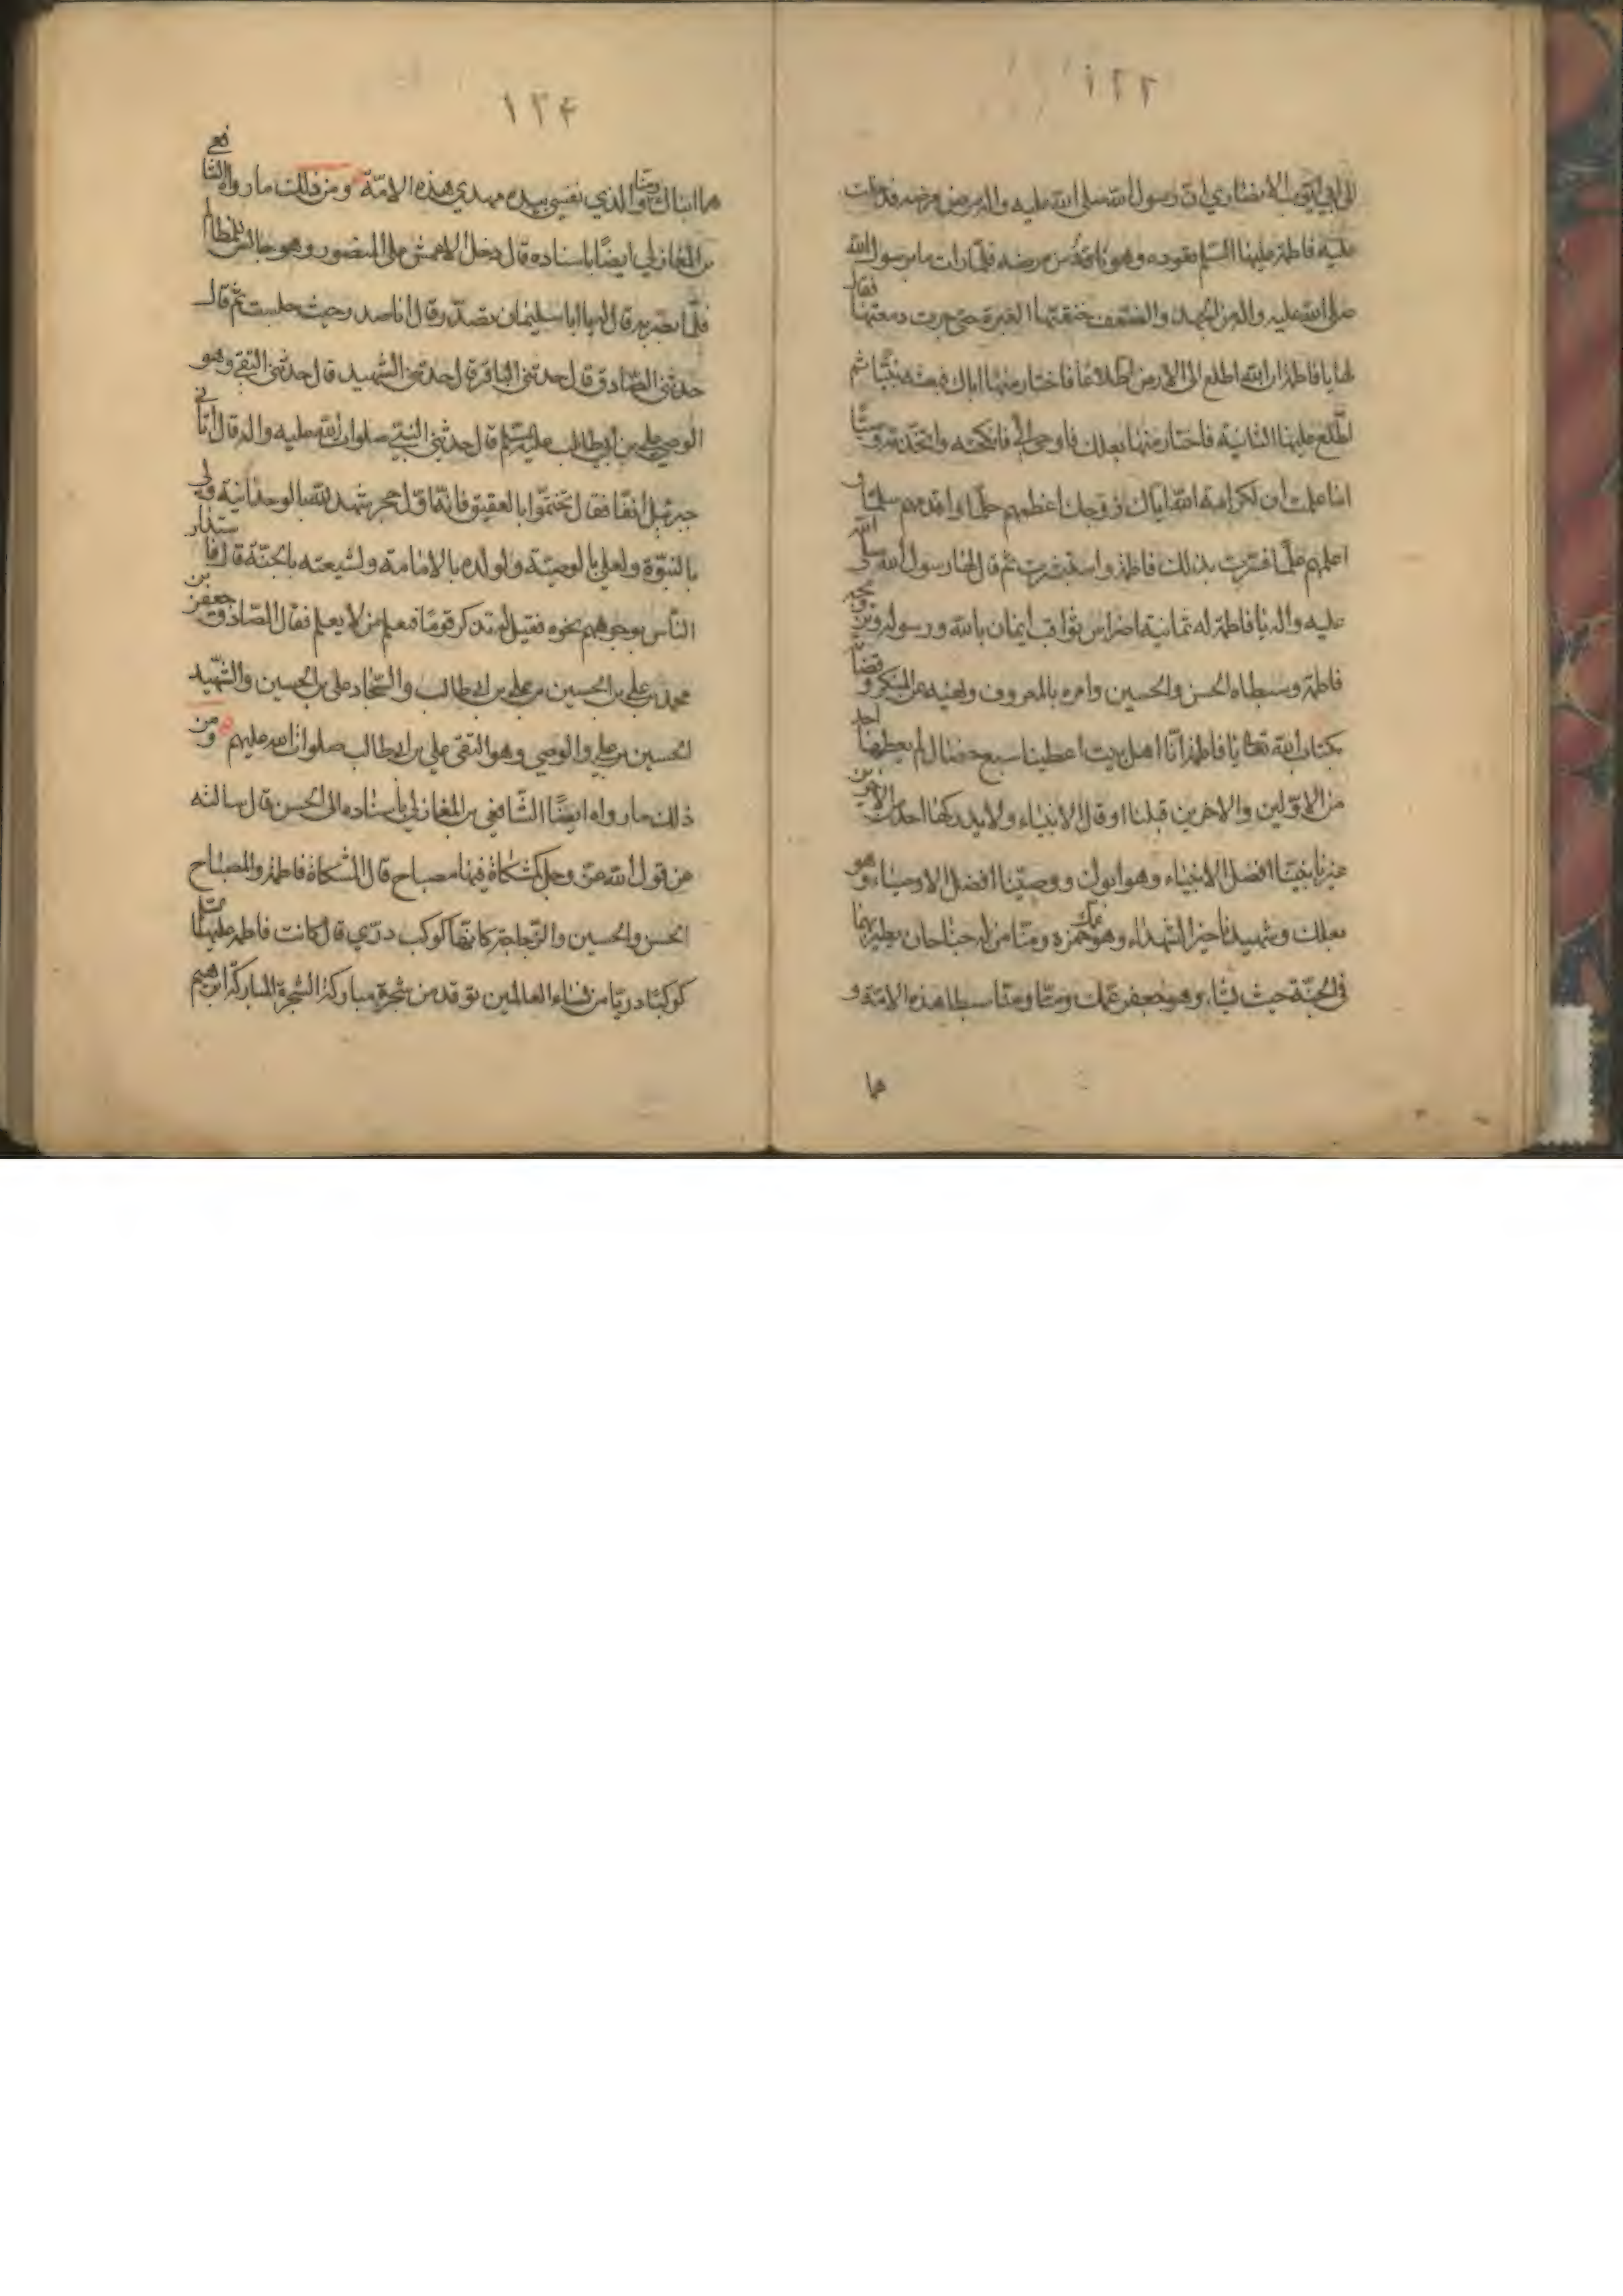 ١٢٣
الى ابي ايوب الانصاري ان رسول الله صلى الله عليه واله مرض مرضه فدخلت
عليه فاطمة عليها السلم تعوده وهو ناقه من مرضه فلما رات ما برسول الله
صلى الله عليه واله من الجهد والضعف خنقتها العبرة حتى جرت دمعتها فقال
لها يا فاطمة ان الله اطلع الى الارض اطلاعا فاختار منها اباك فبعثه نبيا ثم
اطلع عليها الثانية فاختار منها بعلك فاوحى الي فانكحته واتخذته وصيا
اما علمت ان لكرامة الله اياك زوجك اعظمهم حلما واقدمهم سلما و
اعلمهم علما فسرت بذلك فاطمة واستبشرت ثم قال لها رسول الله صلى الله
عليه واله يا فاطمة له ثمانية اضراس ثواقب ايمان بالله ورسوله وتزويجه
فاطمة وسبطاه الحسن والحسين وامره بالمعروف ونهيه عن المنكر وقضاؤه
بكتاب الله تعالى يا فاطمة انا اهل بيت اعطينا سبع خصال لم يعطها احد
من الاولين والاخرين قبلنا او قال الانبياء ولا يدركها احد من الاخرين
غيرنا نبينا افضل الانبياء وهو ابوك ووصينا افضل الاوصياء وهو
بعلك وشهيدنا خير الشهداء وهو حمزة عمك ومنا من له جناحان يطير بهما
في الجنة حيث يشاء وهو جعفر عمك ومنا ومنا سبطا هذه الامة و
هما
١٢۴
هما ابناك ومنا والذي نفسي بيده مهدي هذه الامة ومن ذلك ما رواه الشافعي
بن المغازلي ايضا باسناده قال دخل الاعمش على المنصور وهو جالس للمظالم
فلما بصر به قال له يا ابا سليمان تصدر وقال انا صدر حيث جلست ثم قال
حدثني الصادق قال حدثني الباقر قال حدثني الشهيد قال حدثني التقي وهو
الوصي علي بن ابي طالب عليه السلم قال حدثني النبي صلوات الله عليه واله قال اتاني
جبرئيل انفا فقال تختموا بالعقيق فانه اول حجر شهد لله بالوحدانية ولي
بالنبوة ولعلي بالوصية ولولده بالامامة ولشيعته بالجنة قال فاستدار
الناس بوجوههم نحوه فقيل له تذكر قوما فنعلم من لا يعلم فقال الصادق جعفر بن
محمد بن علي بن الحسين بن علي بن ابي طالب والسجاد علي بن الحسين والشهيد
الحسين بن علي والوصي وهو التقي علي بن ابي طالب صلوات الله عليهم ومن
ذلك ما رواه ايضا الشافعي بن المغازلي باسناده الى الحسن قال سالته
عن قول الله عز وجل كمشكاة فيها مصباح قال المشكاة فاطمة والمصباح
الحسن والحسين والزجاجة كانها كوكب دري قال كانت فاطمة عليها السلم
كوكبا دريا من نساء العالمين توقد من شجرة مباركة الشجرة المباركة ابرهيم